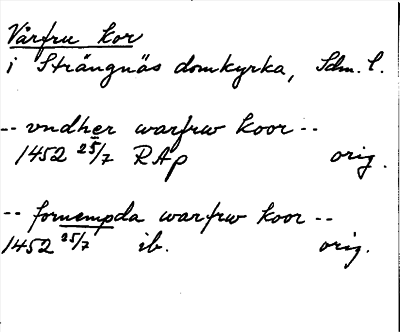 Vårfru kor
i Strängnäs domkyrka, Sdm. l.
-- vndher warfrw koor --
1452 25/7 RAp orig.
-- fornempda warfrw koor --
1452 25/7 ib. orig.